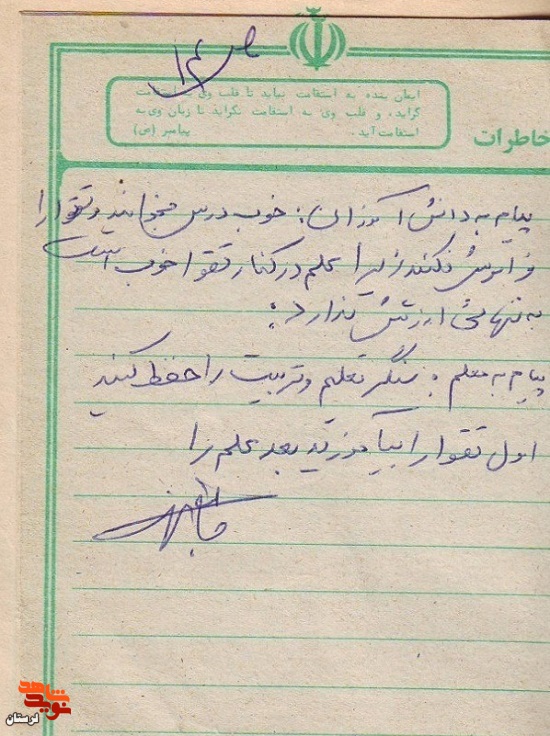 ص ۱۴
ایمان بنده به استقامت نیاید تا قلب وی استقامت
گراید، و قلب وی به استقامت نگراید تا زبان وی به
استقامت آید. پیامبر (ص)
خاطرات
پیام به دانش آموزان: خوب درس بخوانند و تقوا را
فراموش نکنند زیرا علم در کنار تقوا خوب است
به تنهائی ارزش ندارد.
پیام به معلم: سنگر تعلیم و تربیت را حفظ کنید
اول تقوا را بیآموزید بعد علم را
شاهد
نوید
لرستان